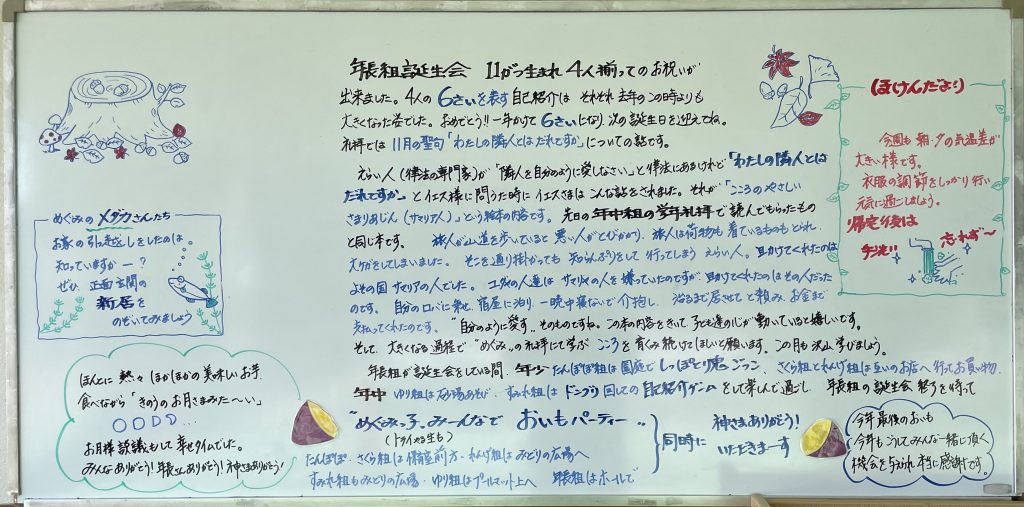 年長組誕生会 11がつ生まれ 4人揃ってのお祝いが
出来ました。4人の 6さいを表す自己紹介は それぞれ 去年のこの時よりも
大きくなった姿でした。おめでとう!!一年かけて6さいになり、次の誕生日を迎えてね。
礼拝では 11月の聖句「わたしの隣人とは だれですか」についての話です。
えらい人(律法の専門家)が「隣人を自分のように愛しなさい」と律法にあるけれど「わたしの隣人とは
だれですか」とイエス様に問うた時に イエスさまは こんな話をされました。それが「こころのやさしい
さまりあじん(サマリア人)」という絵本の内容です。先日の年中組の学年礼拝で読んでもらったもの
と同じ本です。 旅人が山道を歩いていると 悪い人がとびかかり、旅人は荷物も 着ているものも とられ、
大ケガをしてしまいました。そこを通り掛かっても 知らんぷりをして 行ってしまう えらい人。助けてくれたのは
よその国 サマリアの人でした。 ユダヤの人達は サマリヤの人を 嫌っていたのですが、助けてくれたのはその人だった
のです。 自分のロバに乗せ、宿屋に泊り、一晩中寝ないで介抱し、 治るまで居させて と頼み、お金まで
支払ってくれたのです。 "自分のように愛す" そのものですね。この本の内容をきいて 子ども達の心が動いていると嬉しいです。
そして、大きくなる過程で "めぐみ" の礼拝にて学ぶ こころを 育くみ続けてほしいと願います。この月も沢山学びましょう。
年長組が誕生会をしている間、年少 たんぽぽ組は園庭で しっぽとり鬼ごっこ、 さくら組とれんげ組は 互いのお店へ 行ってお買い物、
年中 ゆり組は石場あそび・すみれ組は ドングリ回しでの 自己紹介ゲーム をして楽しんで過ごし 年長組の誕生会終了を待って
"めぐみっ子、みんなで おいもパーティー"
(トライやる生も)
たんぽぽ・さくら組は 保育室前方・れんげ組は みどりの広場へ
すみれ組もみどりの広場・ゆり組はプールマット上へ 年長組はホールで
同時に
神さまありがとう!
いただきまーす
めぐみの メダカさんたち
お家の引っ越しをしたのは
知っていますかー?
ぜひ、正面玄関の
新居を
のぞいてみましょう
ほんとに 熱々 ほかほかの美味しいお芋
食べながら「きのうのお月さまみた〜い」
お月様談議もして 幸せタイムでした。
みんなありがとう!年長さんありがとう!神さまありがとう!
ほけんだより
今週も 朝・夕の気温差が
大きい様です。
衣服の調節をしっかり行い
元気に過ごしましょう。
帰宅後は
手洗い
忘れず〜
今年最後のおいも
今年もこうしてみんな一緒に頂く
機会を与えられ、本当に感謝です。